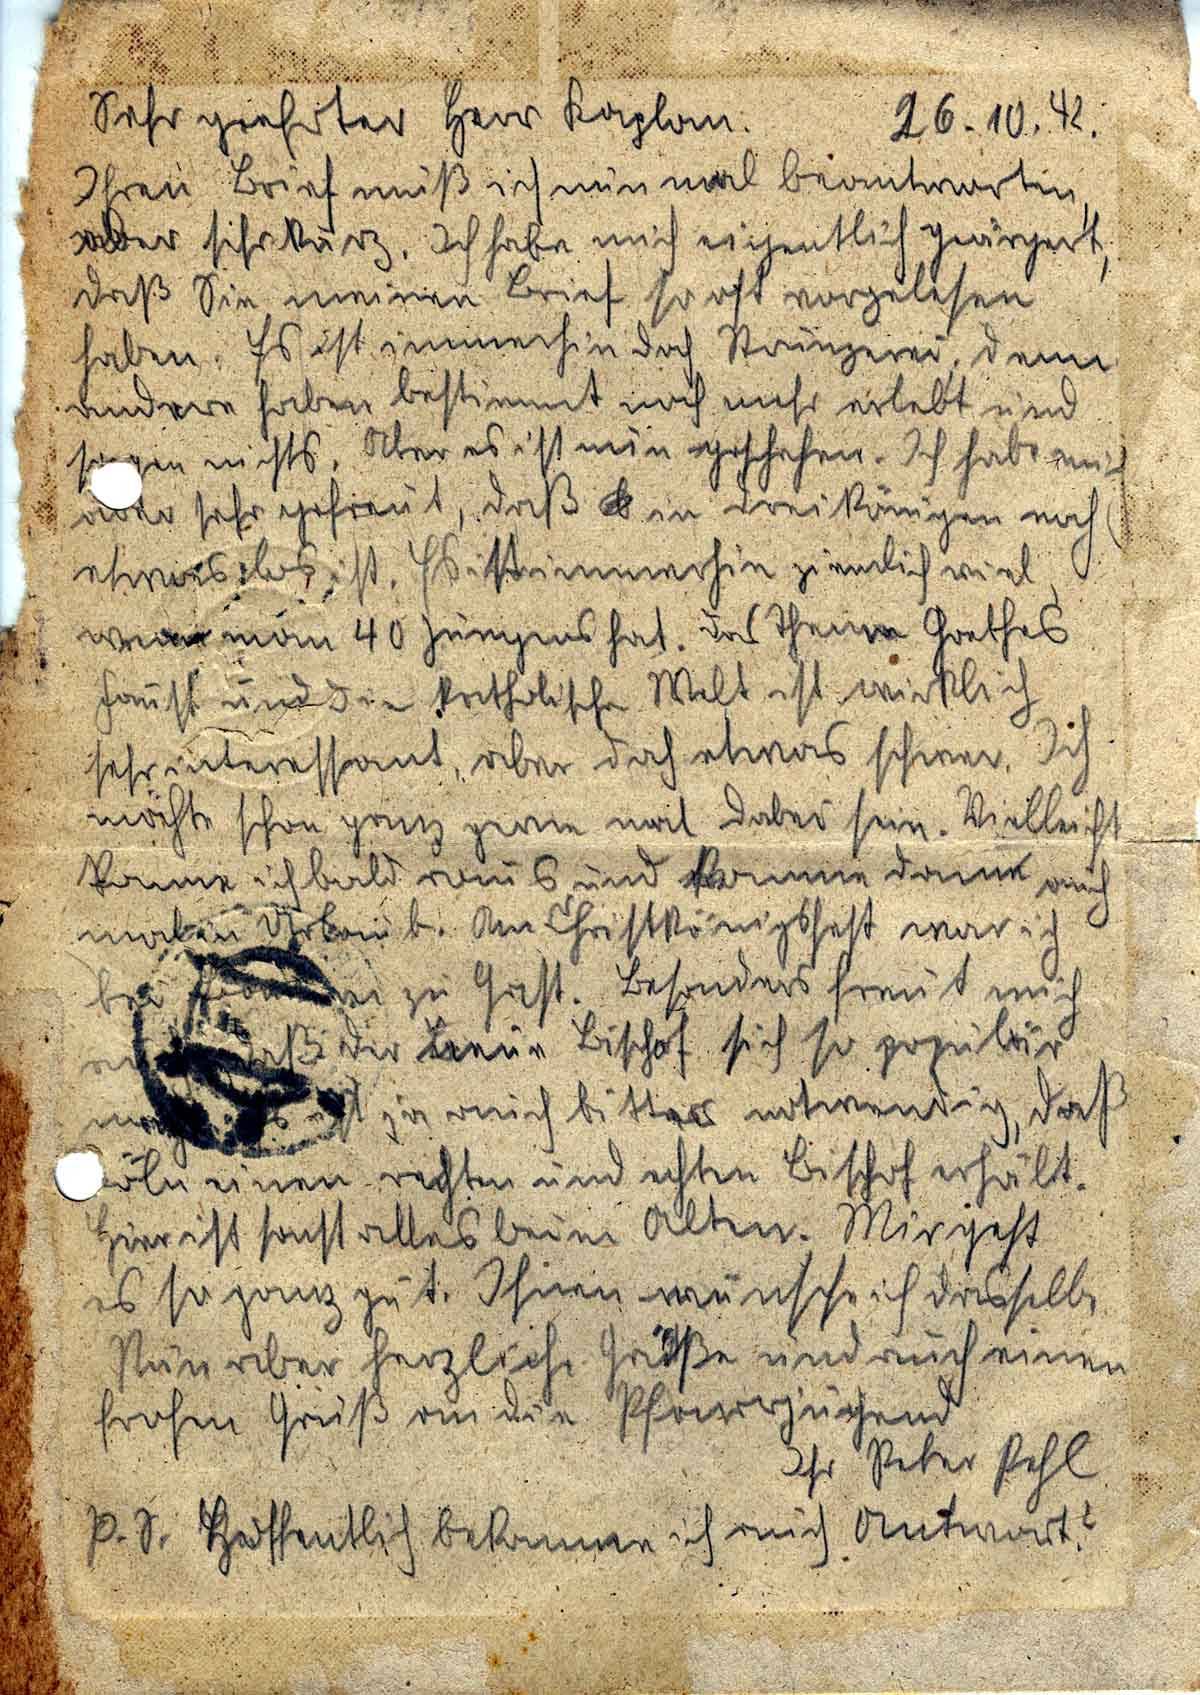 Sehr geehrter Herr Kaplan. 26.10.42.
Ihren Brief muß ich nun mal beantworten,
aber sehr kurz. Ich habe mich eigentlich geärgert,
daß Sie meinen Brief so oft vorgelesen
haben. Es ist immerhin doch Strunzerei, denn
andere haben bestimmt noch mehr erlebt und
sagen nichts. Aber es ist nun geschehen. Ich habe mich
aber sehr gefreut, daß in Dreikönigen noch
etwas los ist. Es ist immerhin ziemlich viel,
wenn man 40 Jungens hat. Das Thema Goethes
Faust und die katholische Welt ist wirklich
sehr interessant, aber doch etwas schwer. Ich
möchte schon ganz gerne mal dabei sein. Vielleicht
komme ich bald raus und komme dann auch
mal in Urlaub. Am Christkönigsfest war ich
bei zu Gast. Besonders freut mich
daß der neue Bischof sich so populär
ist ja auch bitter notwendig, daß
Köln einen rechten und echten Bischof erhält.
Hier ist sonst alles beim Alten. Mir geht
es so ganz gut. Ihnen wünsche ich dasselbe
Nun aber herzliche Grüße und auch einen
frohen Gruß an die Pfarrjugend
Ihr Peter Pehl
P.S. Hoffentlich bekomme ich auch Antwort!